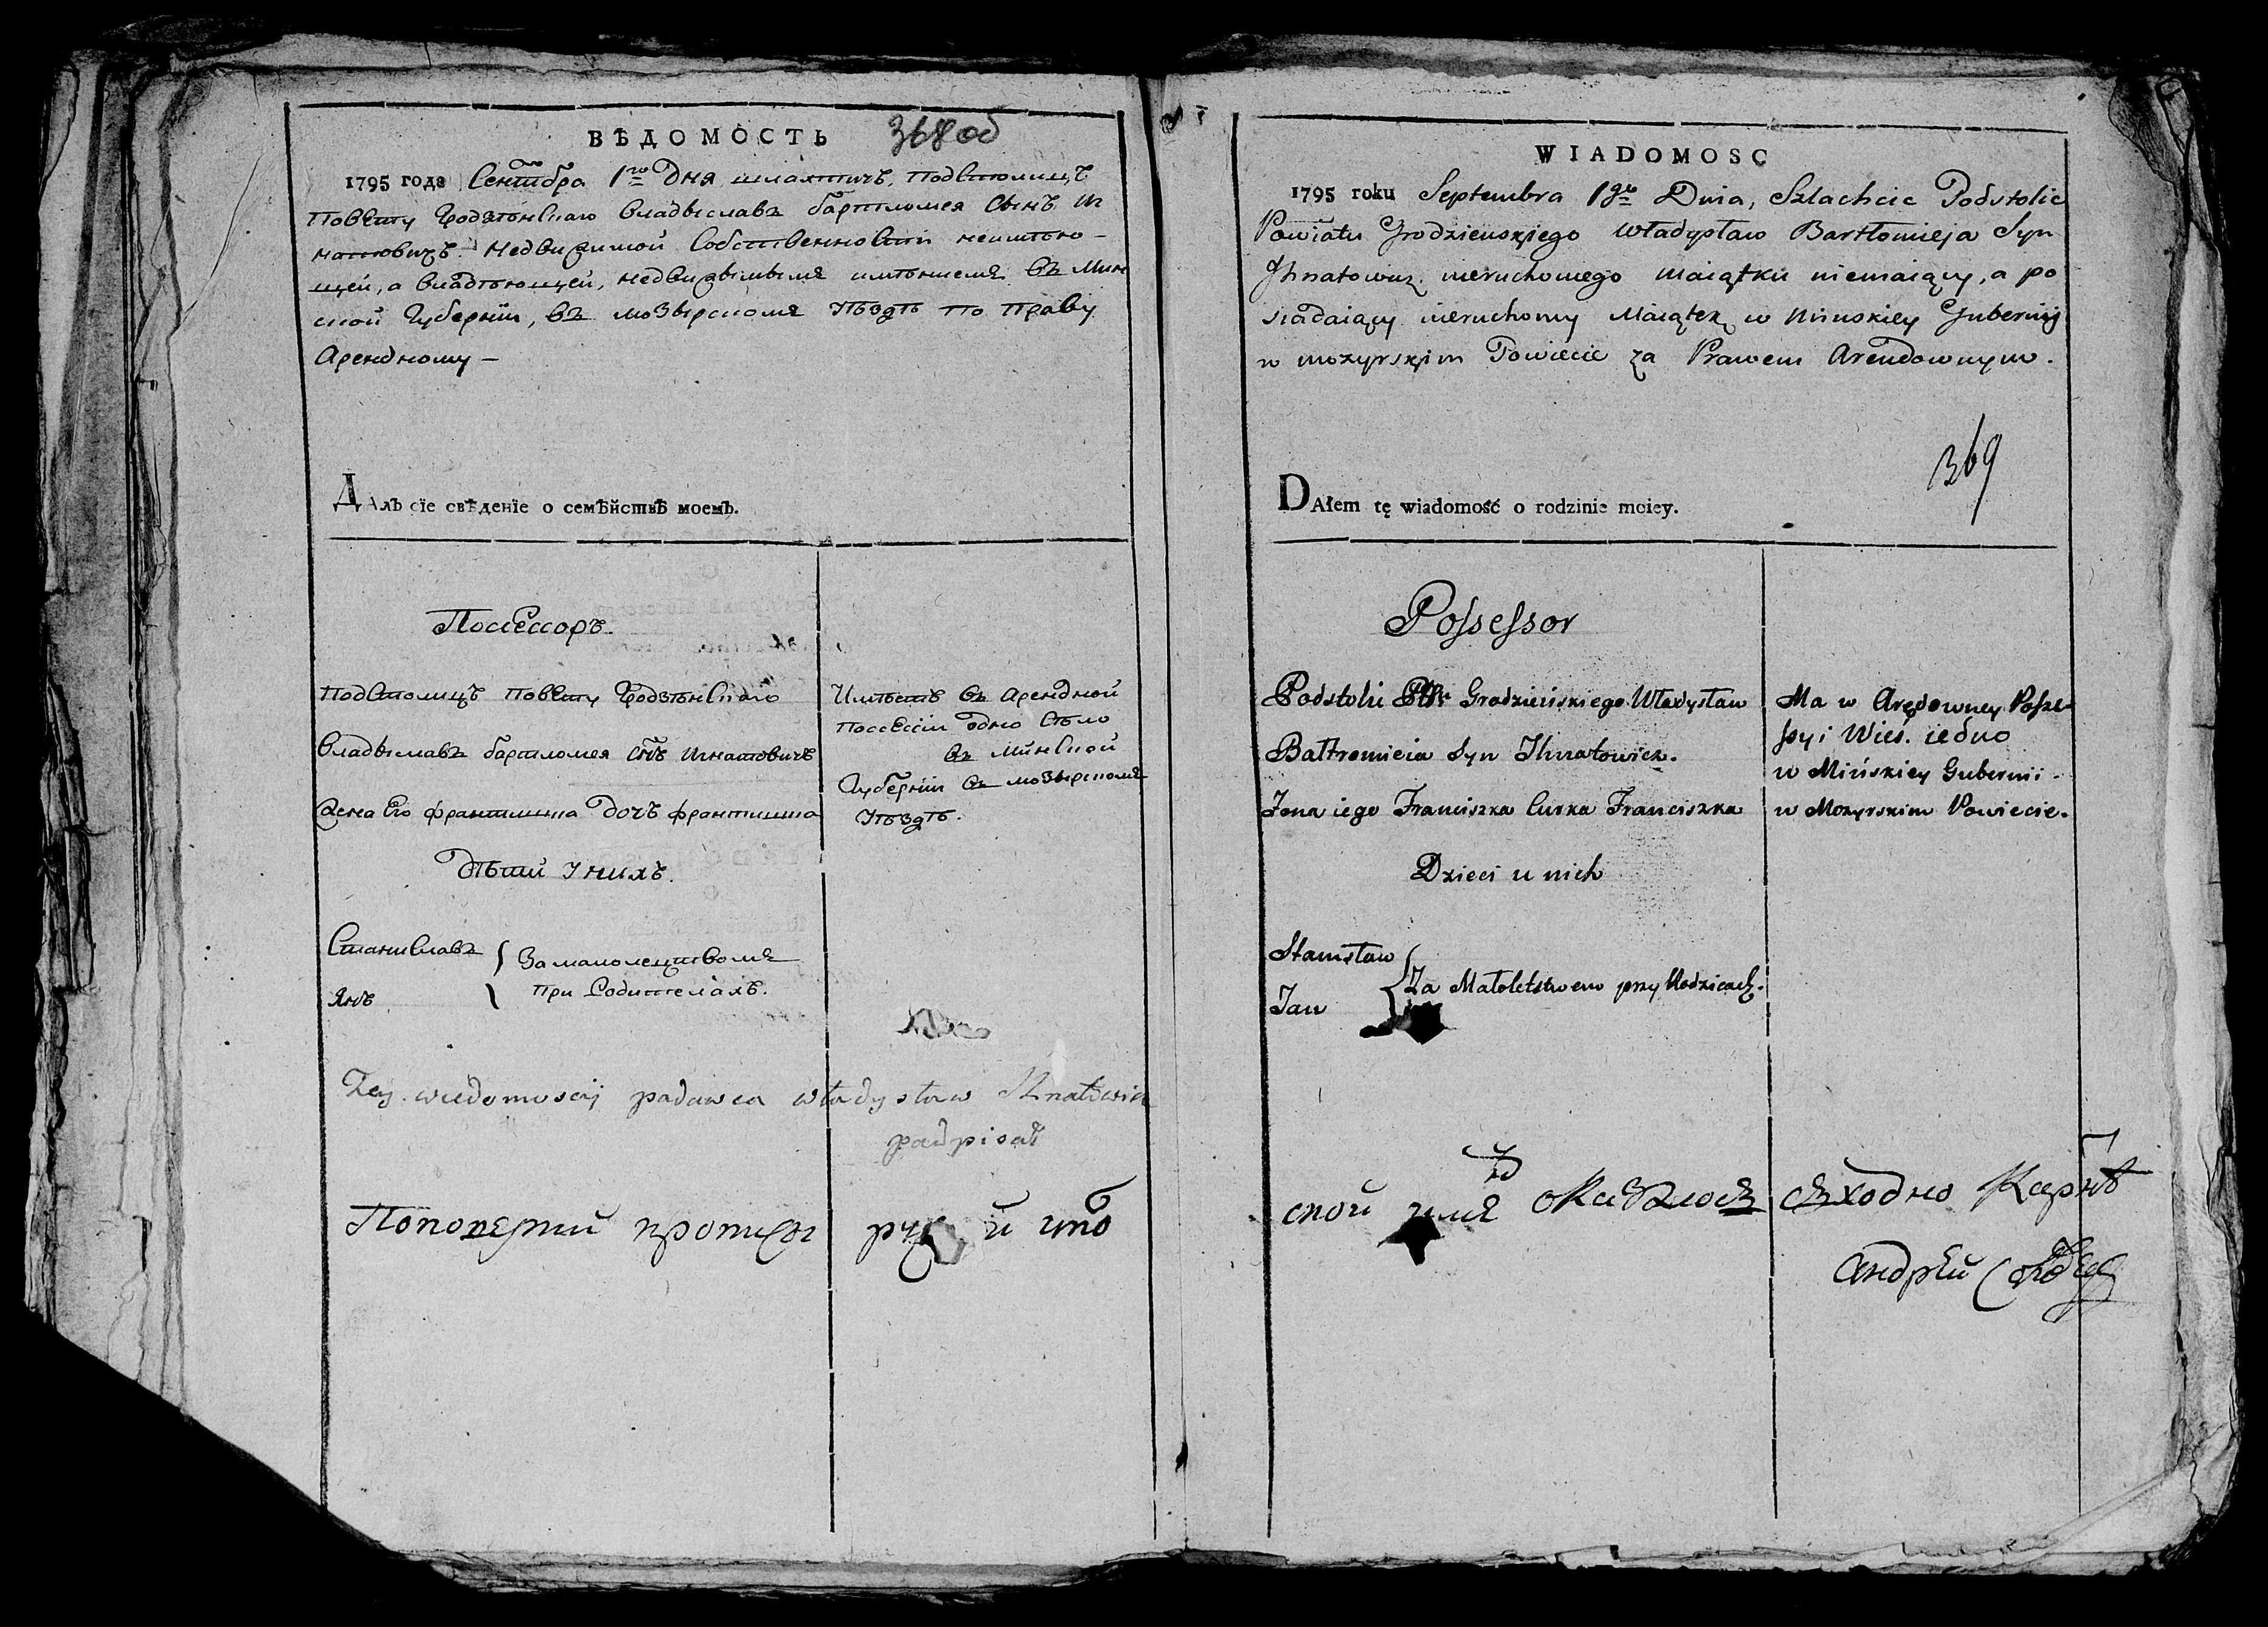 ВѢДОМОСТЬ 368 об
1795 года Сентебра 1го Дня, шляхтичъ, Подстолицъ
Повету Гродзѣнскаго Владыславъ бартломея Сынъ Иг
натовичъ. Недвижимой Собственности неимѣю-
щей, а Владѣющей, недвижимымъ имѣниемъ въ Мин
ской Губерніи, въ мозырскомъ Уѣздѣ по Праву
Арендному —
ДАлъ сїе свѣденїе о семѣйствѣ моемъ.
Поссессоръ.
Подстолицъ Повету Гродзѣнскаго
Владыславъ бартломея Снъ Игнатовичъ
Жена Его франтишка Дочъ франтишка
Дѣти У нихъ.
Станиславъ
Янъ
За малолецтвомъ
При Родителахъ.
Имѣетъ въ Арендной
Поссесіи одно Село
въ Минской
Губерніи въ мозырскомъ
Уѣздѣ.
Tey wiedomosciy podawca władysław Ihnatowicz
padpisał
WIADOMOSC
1795 roku Septembra 1go Dnia, Szlachcic Podstolic
Powiatu Grodzienskiego Władysław Bartłomieja Syn
Ihnatowicz nieruchomego maiątku niemaiący, a po
siadaiący nieruchomy Maiątek w Minskiey Guberniy
w mozyrskim Powiecie za Prawem Arendownym.
369
DAłem tę wiadomość o rodzinie moiey.
Possessor
Podstolic Ptu Grodzieńskiego Władysław
Bałtromieia Syn Ihnatowicz.
Żona iego Franciszka Curka Franciszka
Dzieci u nich
Stanisław
Jan
Za Małoletstwem przy Rodzicach.
Ma w Arędowney Posze-
ssyi Wies. iedno
w Mińskiey Gubernii.
w Mozyrskim Powiecie.
й что
ской оказалось сходно
Андрѣй